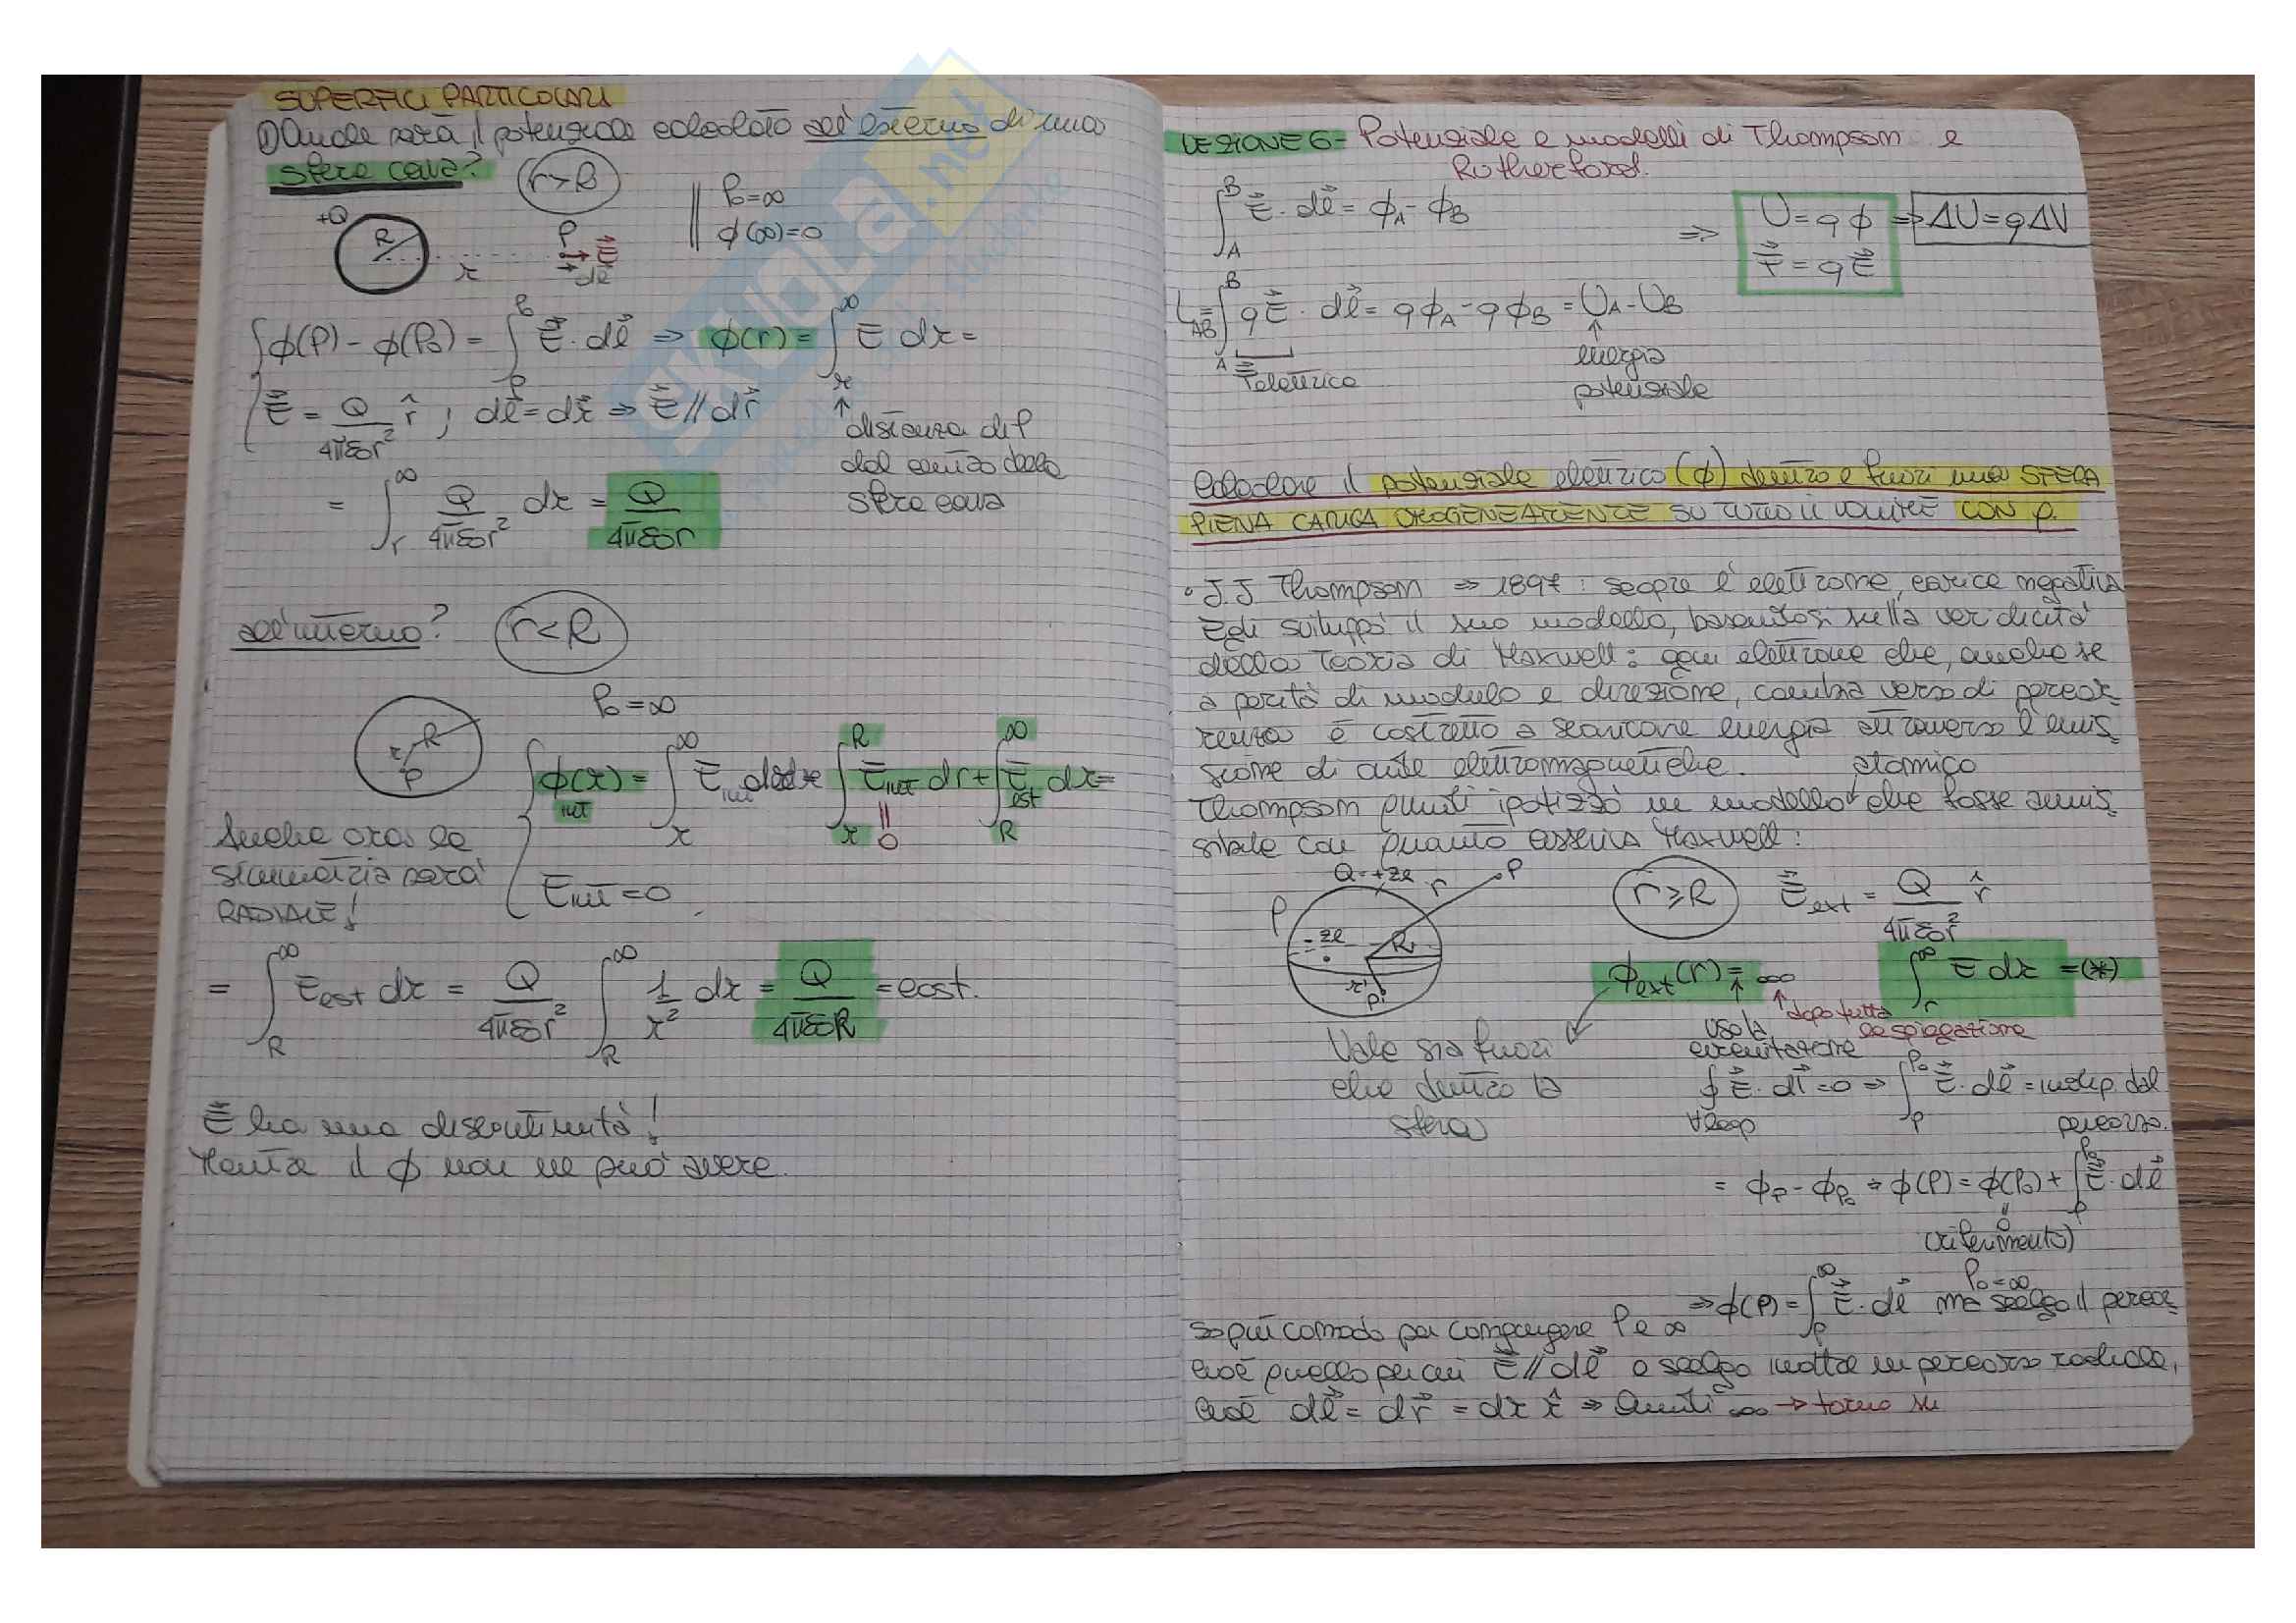 SUPERFICI PARTICOLARI
① Quale sarà il potenziale calcolato all'esterno di una
sfera cava? r>R
P₀=∞
ϕ(∞)=0
+Q R r P E⃗ dl⃗
ϕ(P) - ϕ(P₀) = ∫_P^P₀ E⃗ · dl⃗ ⇒ ϕ(r) = ∫_r^∞ E dr =
E⃗ = Q/4πε₀r² r̂ ; dl⃗ = dr⃗ ⇒ E⃗ // dr⃗
↑ distanza di P
dal centro della
sfera cava
= ∫_r^∞ Q/4πε₀r² dr = Q/4πε₀r
all'interno? r<R
P₀=∞
R r P
ϕ(r)int = ∫_r^∞ E int dr = ∫_r^R E int dr + ∫_R^∞ E est dr =
|| 0
Anche ora la
simmetria sarà
RADIALE!
E int = 0
= ∫_R^∞ E est dr = Q/4πε₀r² ∫_R^∞ 1/r² dr = Q/4πε₀R = cost.
E⃗ ha una discontinuità!
Mentre il ϕ non ne può avere.
LEZIONE 6- Potenziale e modelli di Thompson e
Rutherford.
∫_A^B E⃗ · dl⃗ = ϕ_A - ϕ_B
⇒ U = qϕ ⇒ ΔU = qΔV
F⃗ = qE⃗
L_AB = ∫_A^B qE⃗ · dl⃗ = qϕ_A - qϕ_B = U_A - U_B
F elettrica
↑ energia
potenziale
Calcolare il potenziale elettrico (ϕ) dentro e fuori una SFERA
PIENA CARICA OMOGENEAMENTE SU TUTTO IL VOLUME CON ρ.
• J.J Thompson ⇒ 1897 : scopre l'elettrone, carica negativa
Egli sviluppò il suo modello, basandosi sulla veridicità
della Teoria di Maxwell: ogni elettrone che, anche se
a parità di modulo e direzione, cambia verso di percor-
renza è costretto a scaricare energia attraverso l'emis-
sione di onde elettromagnetiche. atomico
Thompson quindi ipotizzò un modello che fosse ammis-
sibile con quanto asseriva Maxwell:
Q=+ze r P
ρ -ze R r' P'
r⩾R E⃗ext = Q/4πε₀r² r̂
ϕext(r) = ∞ ∫_r^∞ E dr = (*)
↑ uso la
circuitazione
↑ dopo tutta
la spiegazione
Vale sia fuori
che dentro la
sfera
∮ E⃗ · dl⃗ = 0 ⇒ ∫_P^P₀ E⃗ · dl⃗ = indip. dal
∀loop percorso.
= ϕ_P - ϕ_P₀ ⇒ ϕ(P) = ϕ(P₀) + ∫_P^P₀ E⃗ · dl⃗
|| 0
(riferimento)
P₀=∞
⇒ ϕ(P) = ∫_P^∞ E⃗ · dl⃗ ma scelgo il percor-
so più comodo per congiungere P e ∞
cioè quello per cui E⃗ // dl⃗ e scelgo inoltre un percorso radiale,
cioè dl⃗ = dr⃗ = dr r̂ ⇒ Quindi ∞ → torno su